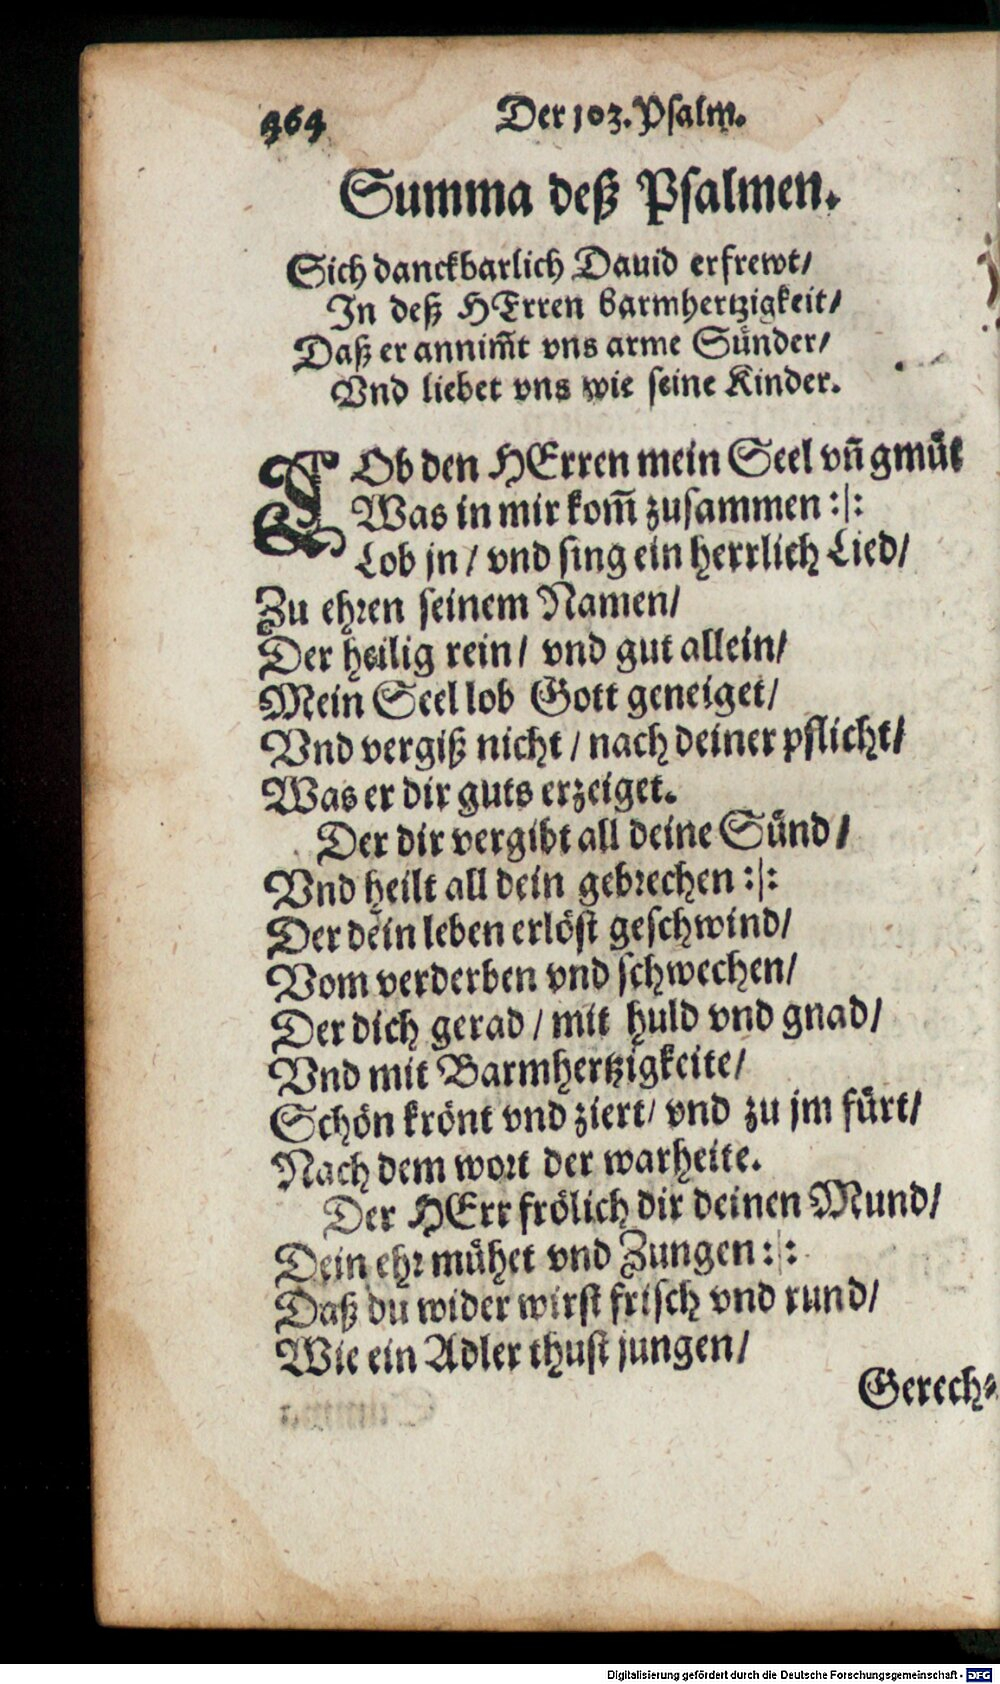 464 Der 103. Psalm.
Summa deß Psalmen.
Sich danckbarlich Dauid erfrewt/
In deß HErren barmhertzigkeit/
Daß er annim̃t vns arme Sünder/
Vnd liebet vns wie seine Kinder.
LOb den HErren mein Seel vñ gmüt
Was in mir kom̃ zusammen :|:
Lob jn / vnd sing ein herrlich Lied/
Zu ehren seinem Namen/
Der heilig rein / vnd gut allein/
Mein Seel lob Gott geneiget/
Vnd vergiß nicht / nach deiner pflicht/
Was er dir guts erzeiget.
Der dir vergibt all deine Sünd /
Vnd heilt all dein gebrechen :|:
Der dein leben erlöst geschwind/
Vom verderben vnd schwechen/
Der dich gerad / mit huld vnd gnad/
Vnd mit Barmhertzigkeite/
Schön krönt vnd ziert/ vnd zu jm fürt/
Nach dem wort der warheite.
Der HErr frölich dir deinen Mund/
Dein ehr mühet vnd Zungen :|:
Daß du wider wirst frisch vnd rund/
Wie ein Adler thust jungen/
Gerech⸗
Digitalisierung gefördert durch die Deutsche Forschungsgemeinschaft - DFG